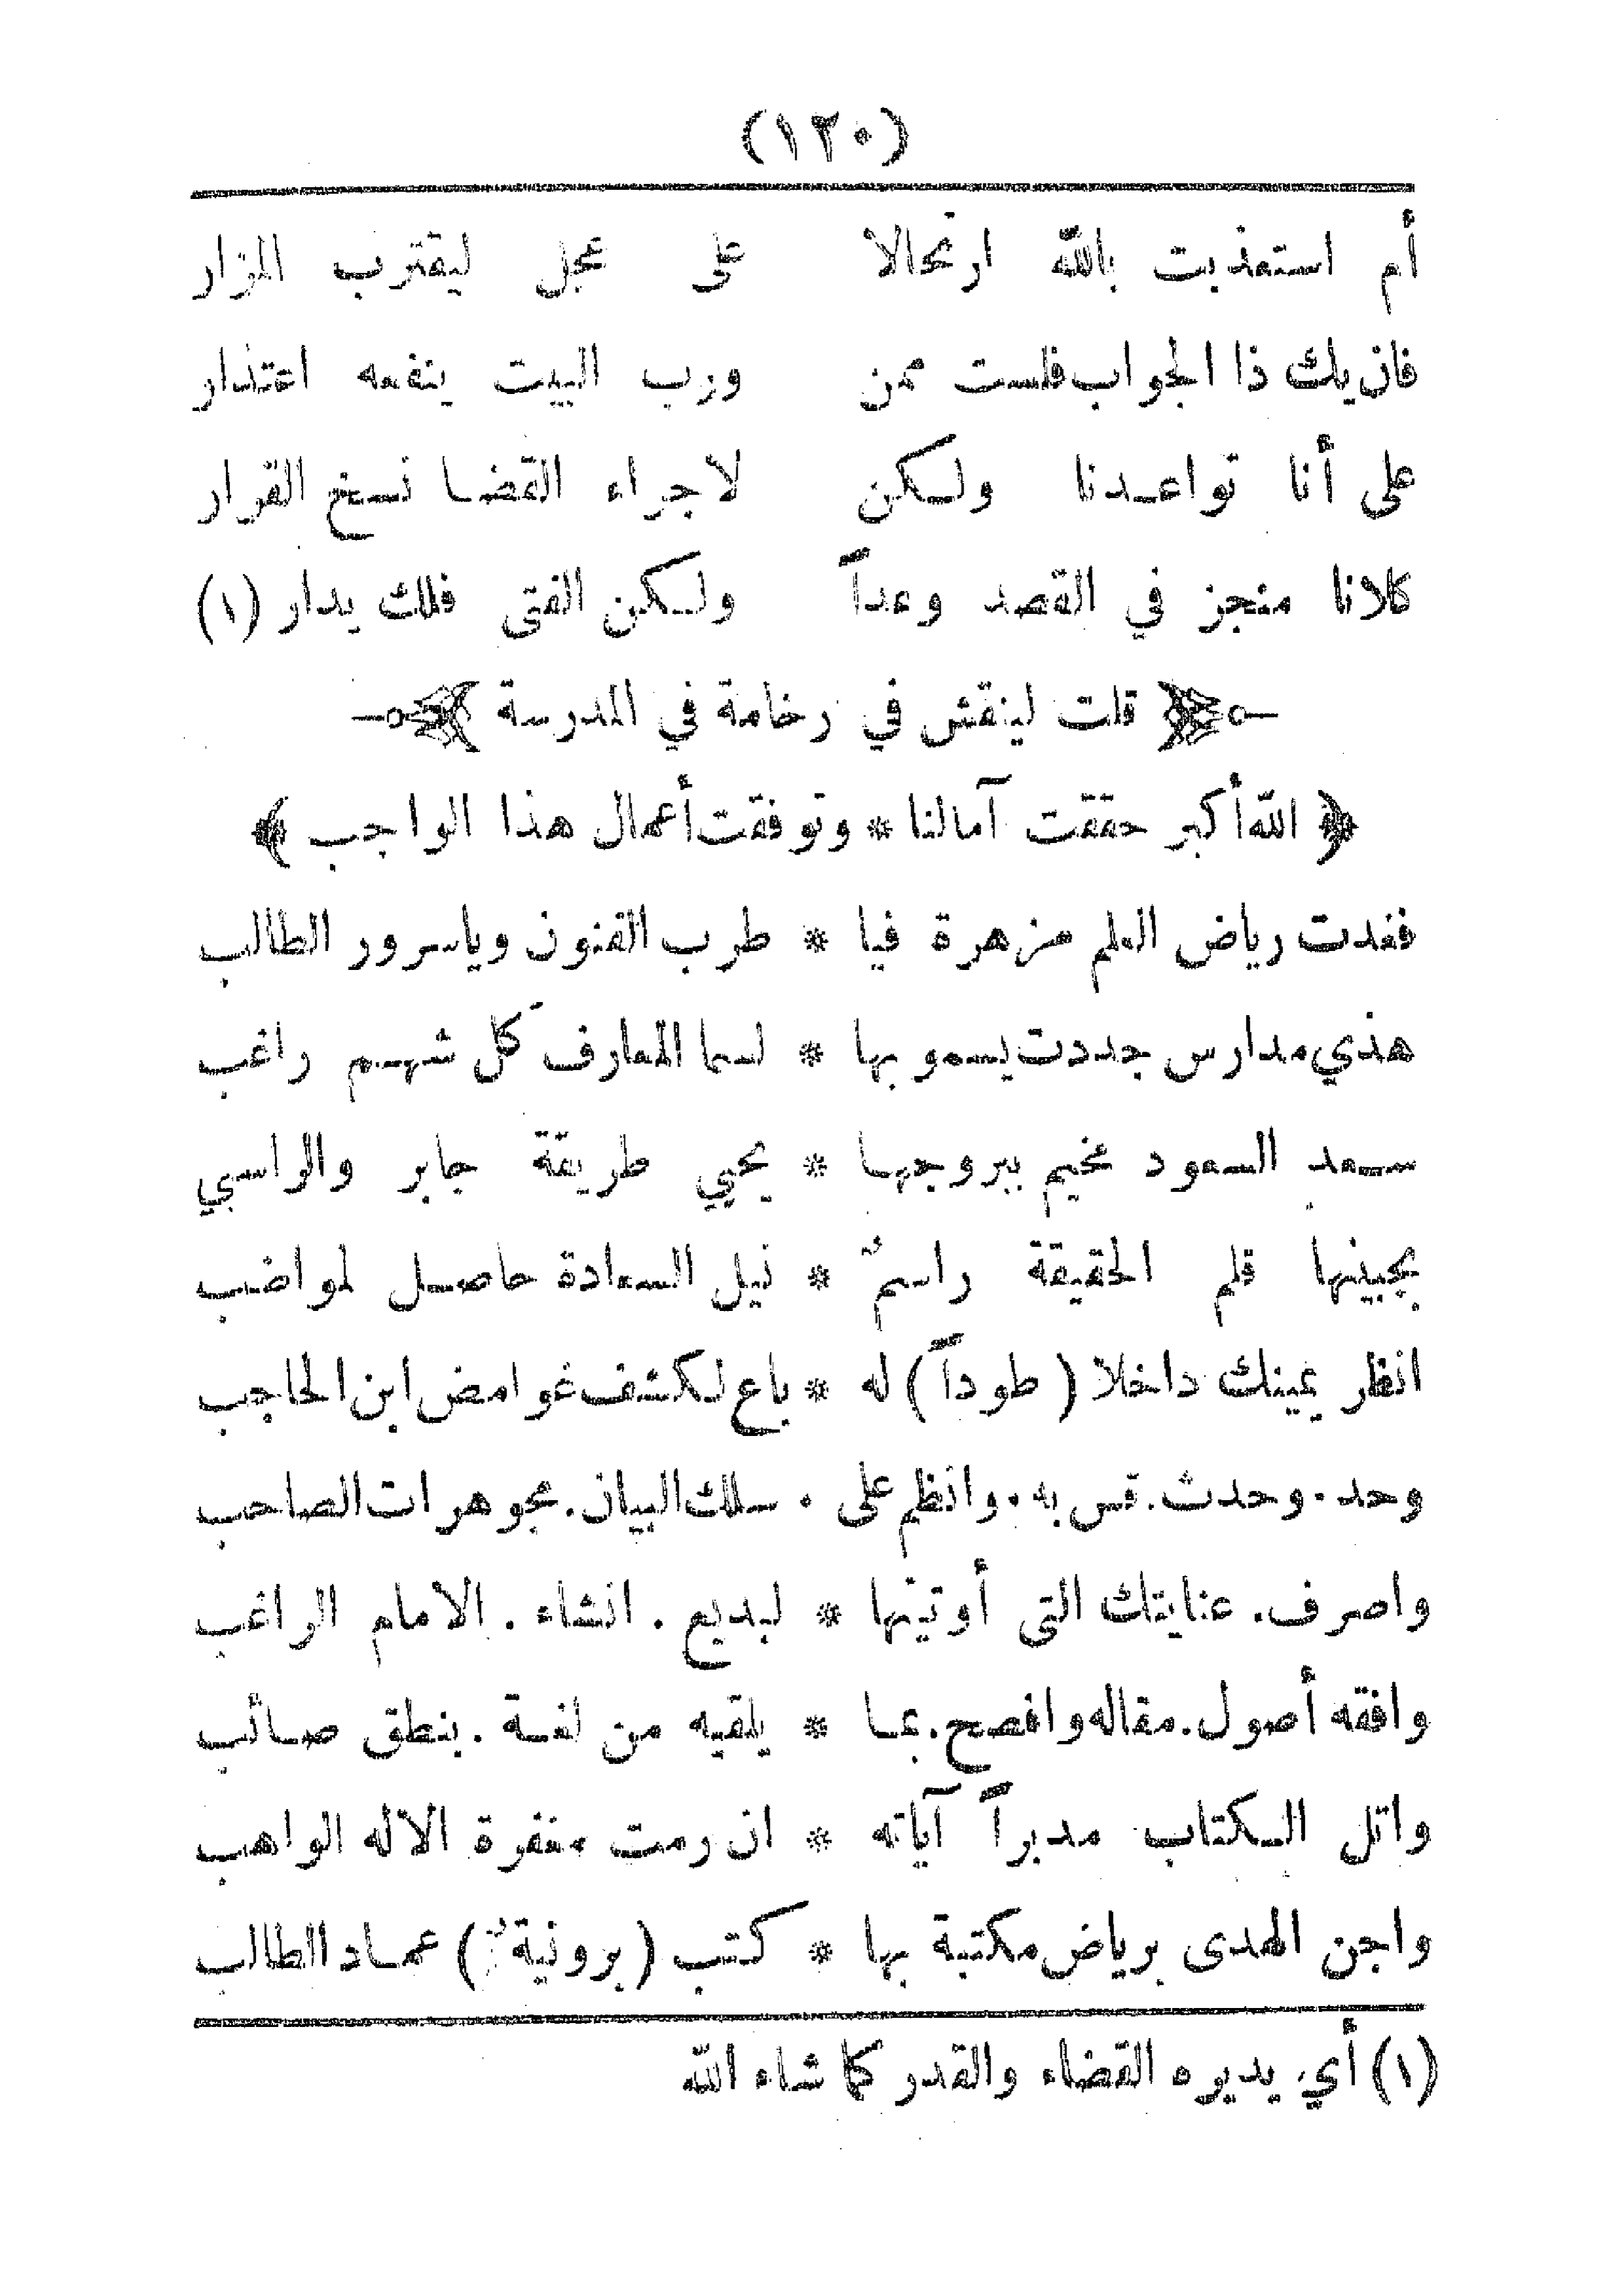 (١٢٠)
أم استعذبت بالله ارتحالا على عجل ليقترب المزار
فان يك ذا الجواب فلست ممن ورب البيت ينفعه اعتذار
على أنا تواعدنا ولكن لاجراء القضا نسخ القرار
كلانا منجز في القصد وعداً ولكن الفتى فلك يدار (١)
﴿ قلت لينقش في رخامة في المدرسة ﴾
﴿ الله أكبر حققت آمالنا * وتوفقت أعمال هذا الواجب ﴾
فغدت رياض العلم مزهرة فيا * طرب الفنون وياسرور الطالب
هذي مدارس جددت يسمو بها * لسما المعارف كل شهم راغب
سعد السعود مخيم ببروجها * يحيي طريقة جابر والراسبي
بجبينها قلم الحقيقة راسمٌ * نيل السعادة حاصل لمواضب
انظر يمينك داخلا (طوداً) له * باع لكشف غوامض ابن الحاجب
وحد . وحدث . قس به . وانظم على . سلك البيان . مجوهرات الصاحب
واصرف . عنايتك التي أوتيتها * لبديع . انشاء . الامام الراغب
وافقه أصول . مقاله وافصح . بما * يلقيه من لغة . بنطق صائب
واتل الكتاب مدبراً آياته * ان رمت مغفرة الاله الواهب
واجن الهدى برياض مكتبة بها * كتب (برونيةٌ) عماد الطالب
(١) أي يديره القضاء والقدر كما شاء الله